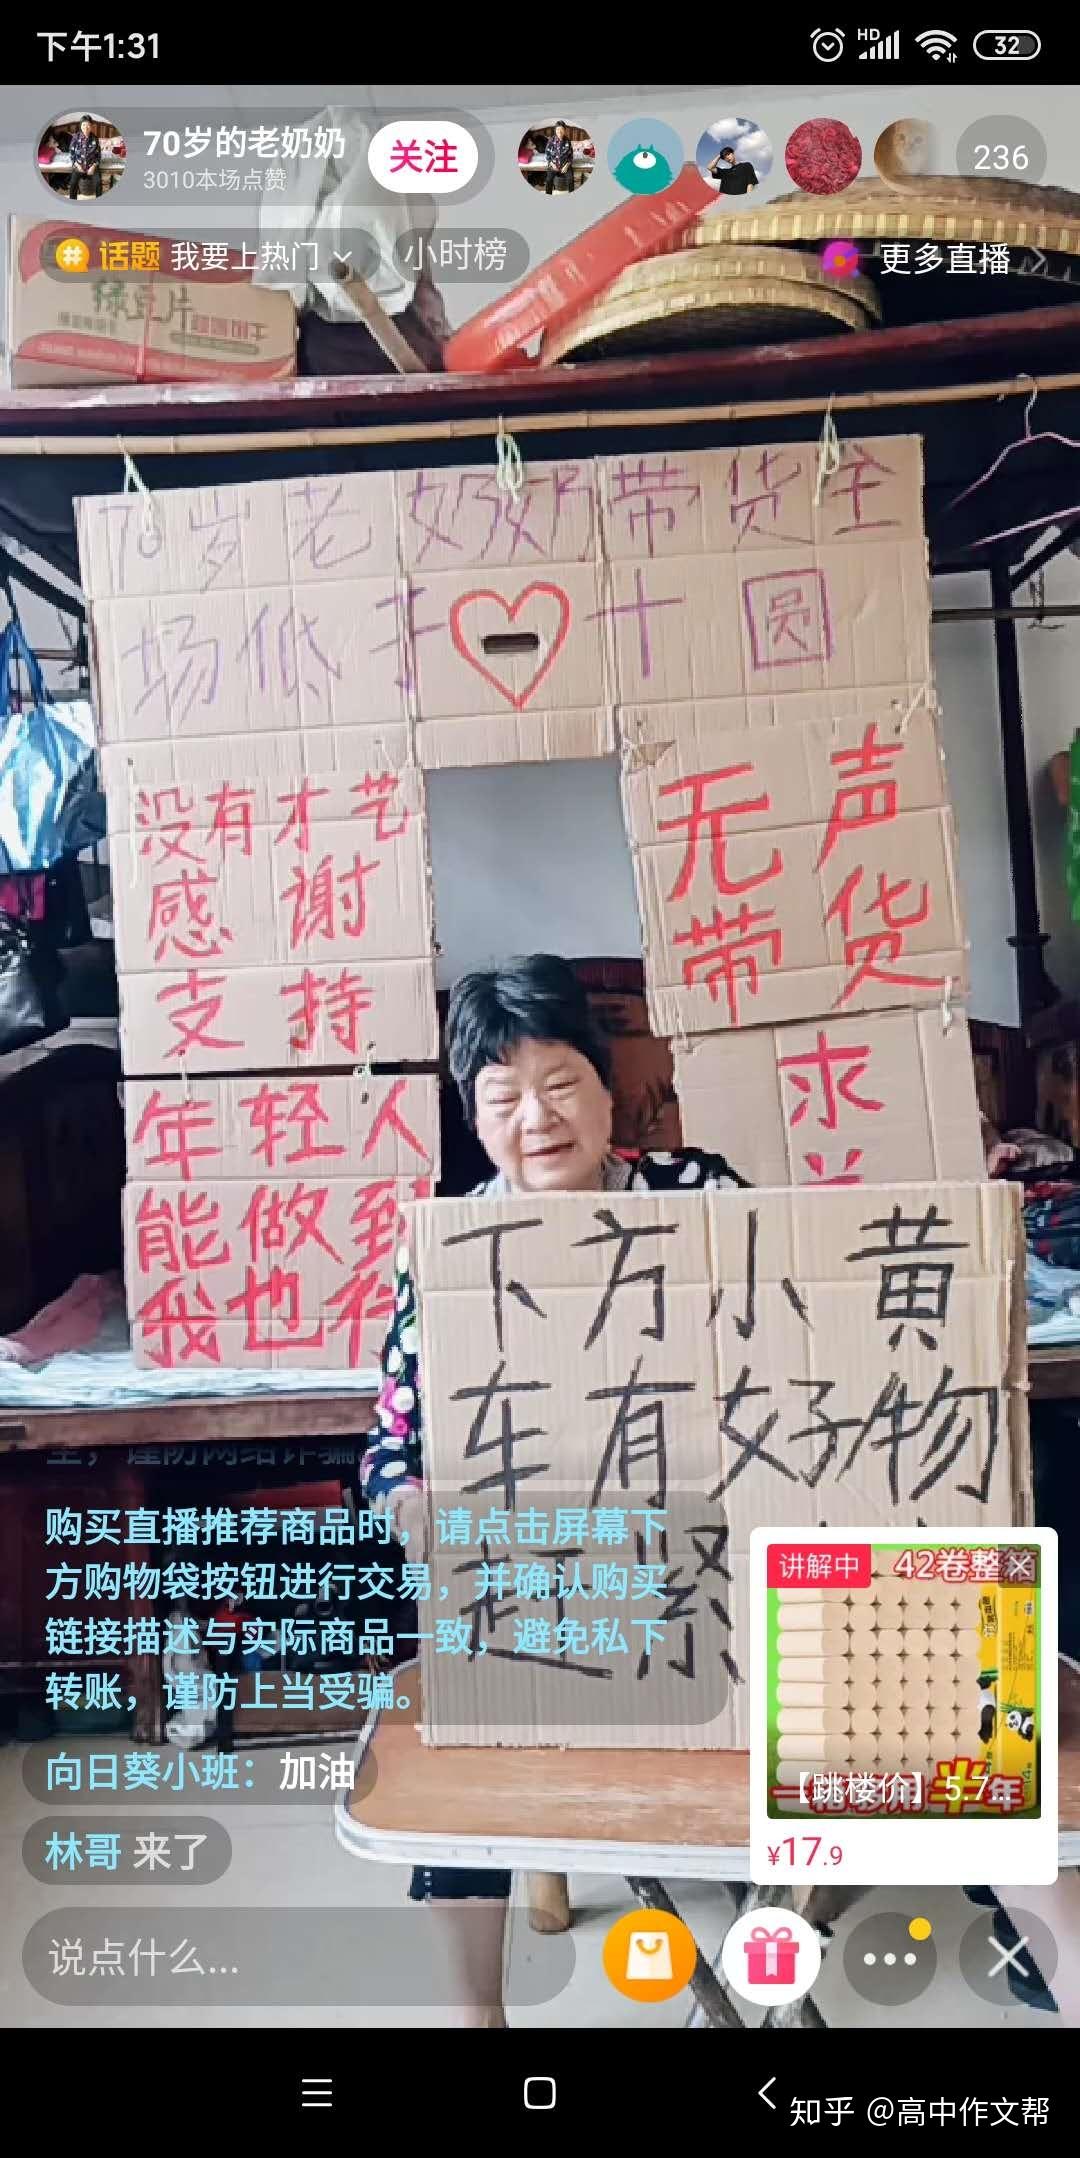 下午1:31
HD
32
70岁的老奶奶
3010本场点赞
关注
236
话题 我要上热门
小时榜
更多直播
绿豆片
70岁老奶奶带货全
场低于一十圆
没有才艺
感谢
支持
年轻人
能做到
我也行
无声
带货
求
下方小黄
车有好物
赶紧
购买直播推荐商品时，请点击屏幕下
方购物袋按钮进行交易，并确认购买
链接描述与实际商品一致，避免私下
转账，谨防上当受骗。
向日葵小班：加油
林哥 来了
讲解中
42卷整箱
半年
【跳楼价】5.7...
¥17.9
说点什么...
知乎 @高中作文帮